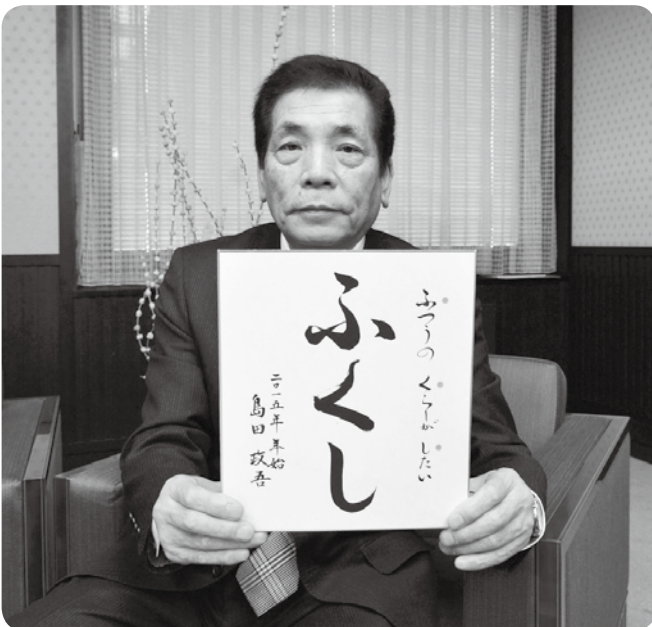 ふつうの くらしが したい
ふくし
二〇一五年 年始
島田 政吾